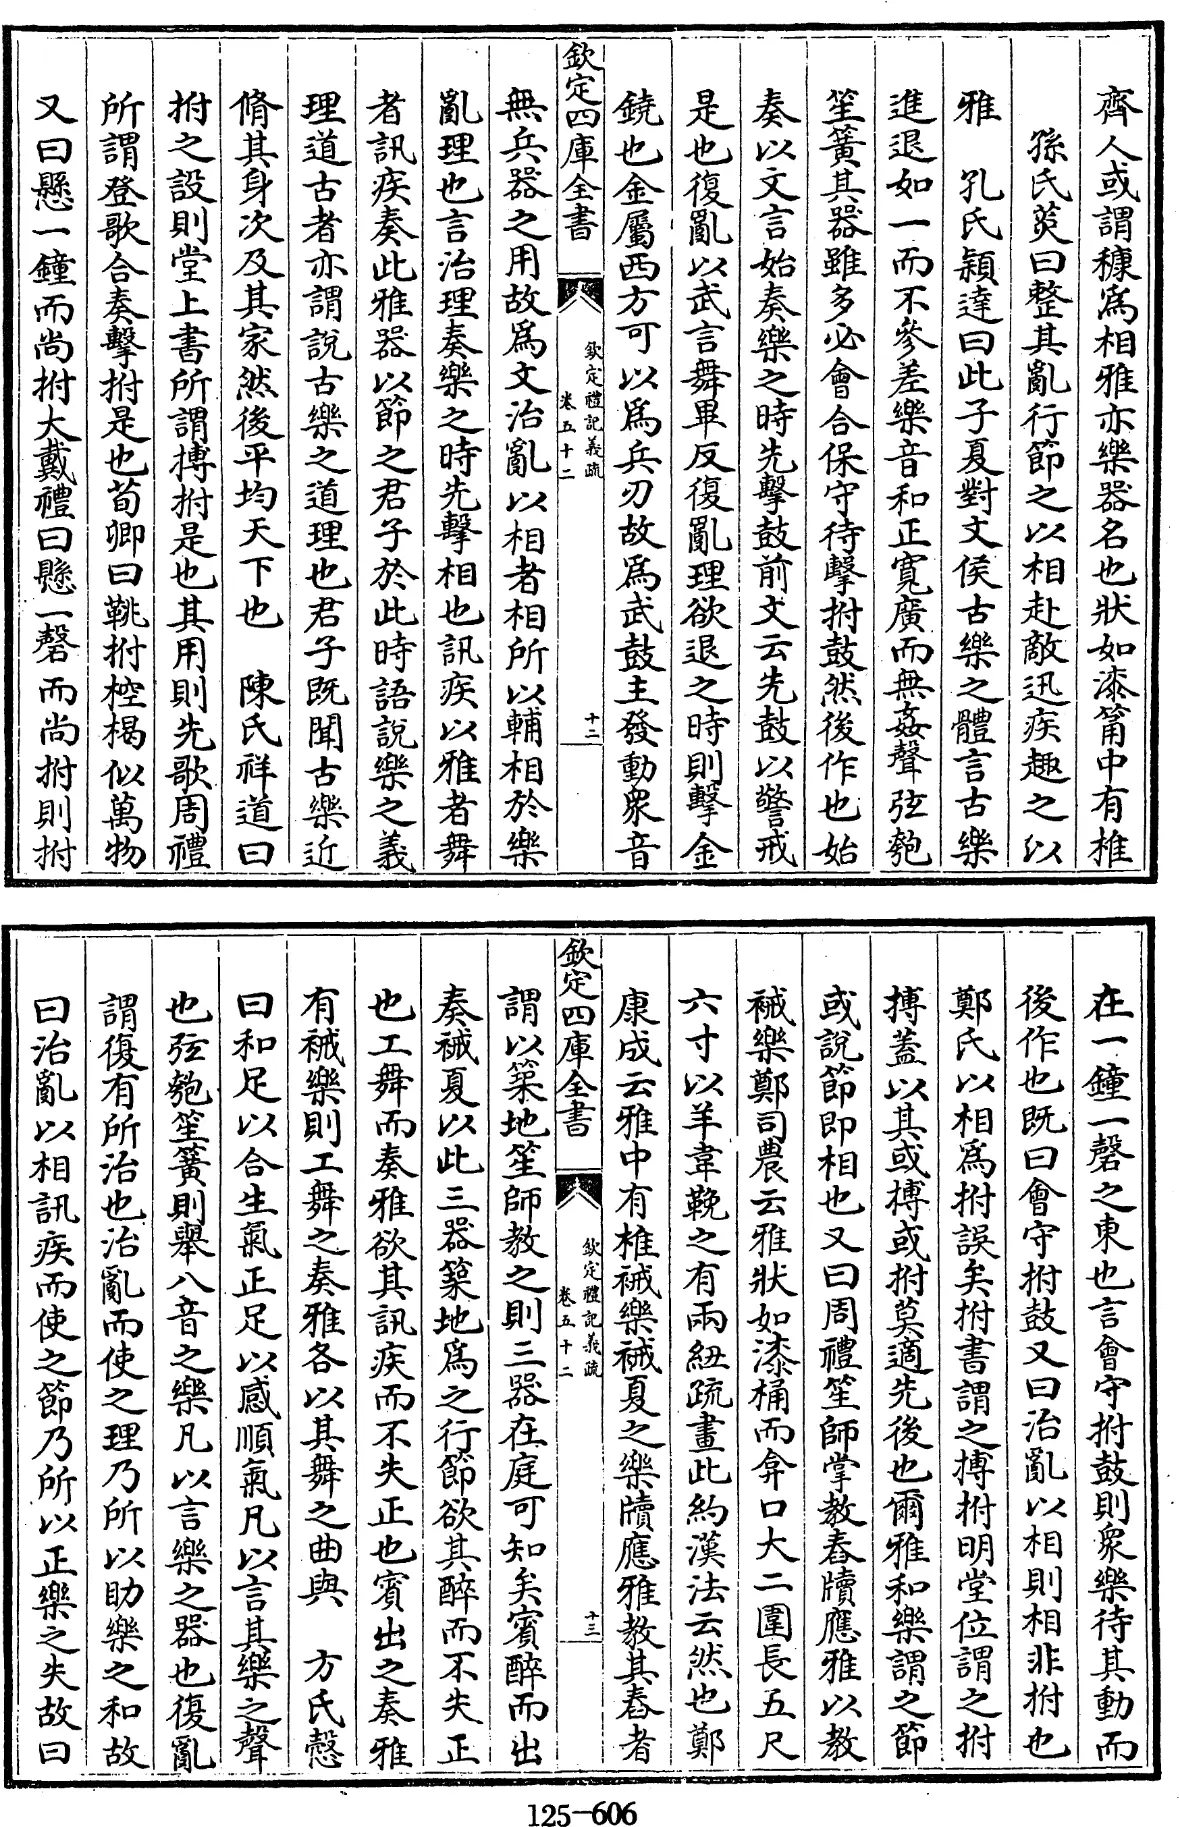 齊人或謂穅爲相雅亦樂器名也狀如漆筩中有椎
孫氏炎曰整其亂行節之以相赴敵迅疾趣之以
雅　孔氏穎達曰此子夏對文侯古樂之體言古樂
進退如一而不參差樂音和正寛廣而無姦聲弦匏
笙簧其器雖多必會合保守待擊拊鼓然後作也始
奏以文言始奏樂之時先擊鼓前文云先鼓以警戒
是也復亂以武言舞畢反復亂理欲退之時則擊金
鐃也金屬西方可以爲兵刃故爲武鼓主發動衆音
欽定四庫全書
欽定禮記義疏
卷五十二
十二
無兵器之用故爲文治亂以相者相所以輔相於樂
亂理也言治理奏樂之時先擊相也訊疾以雅者舞
者訊疾奏此雅器以節之君子於此時語說樂之義
理道古者亦謂說古樂之道理也君子既聞古樂近
脩其身次及其家然後平均天下也　陳氏祥道曰
拊之設則堂上書所謂搏拊是也其用則先歌周禮
所謂登歌合奏擊拊是也荀卿曰鞉拊椌楬似萬物
又曰懸一鐘而尚拊大戴禮曰懸一磬而尚拊則拊
在一鐘一磬之東也言會守拊鼓則衆樂待其動而
後作也既曰會守拊鼓又曰治亂以相則相非拊也
鄭氏以相爲拊誤矣拊書謂之搏拊明堂位謂之拊
搏葢以其或搏或拊莫適先後也爾雅和樂謂之節
或說節即相也又曰周禮笙師掌教舂牘應雅以教
祴樂鄭司農云雅狀如漆桶而弇口大二圍長五尺
六寸以羊韋鞔之有兩紐疏畫此約漢法云然也鄭
康成云雅中有椎祴樂祴夏之樂牘應雅教其舂者
欽定四庫全書
欽定禮記義疏
卷五十二
十三
謂以築地笙師教之則三器在庭可知矣賓醉而出
奏祴夏以此三器築地爲之行節欲其醉而不失正
也工舞而奏雅欲其訊疾而不失正也賓出之奏雅
有祴樂則工舞之奏雅各以其舞之曲與　方氏慤
曰和足以合生氣正足以感順氣凡以言其樂之聲
也弦匏笙簧則舉八音之樂凡以言樂之器也復亂
謂復有所治也治亂而使之理乃所以助樂之和故
曰治亂以相訊疾而使之節乃所以正樂之失故曰
125-606